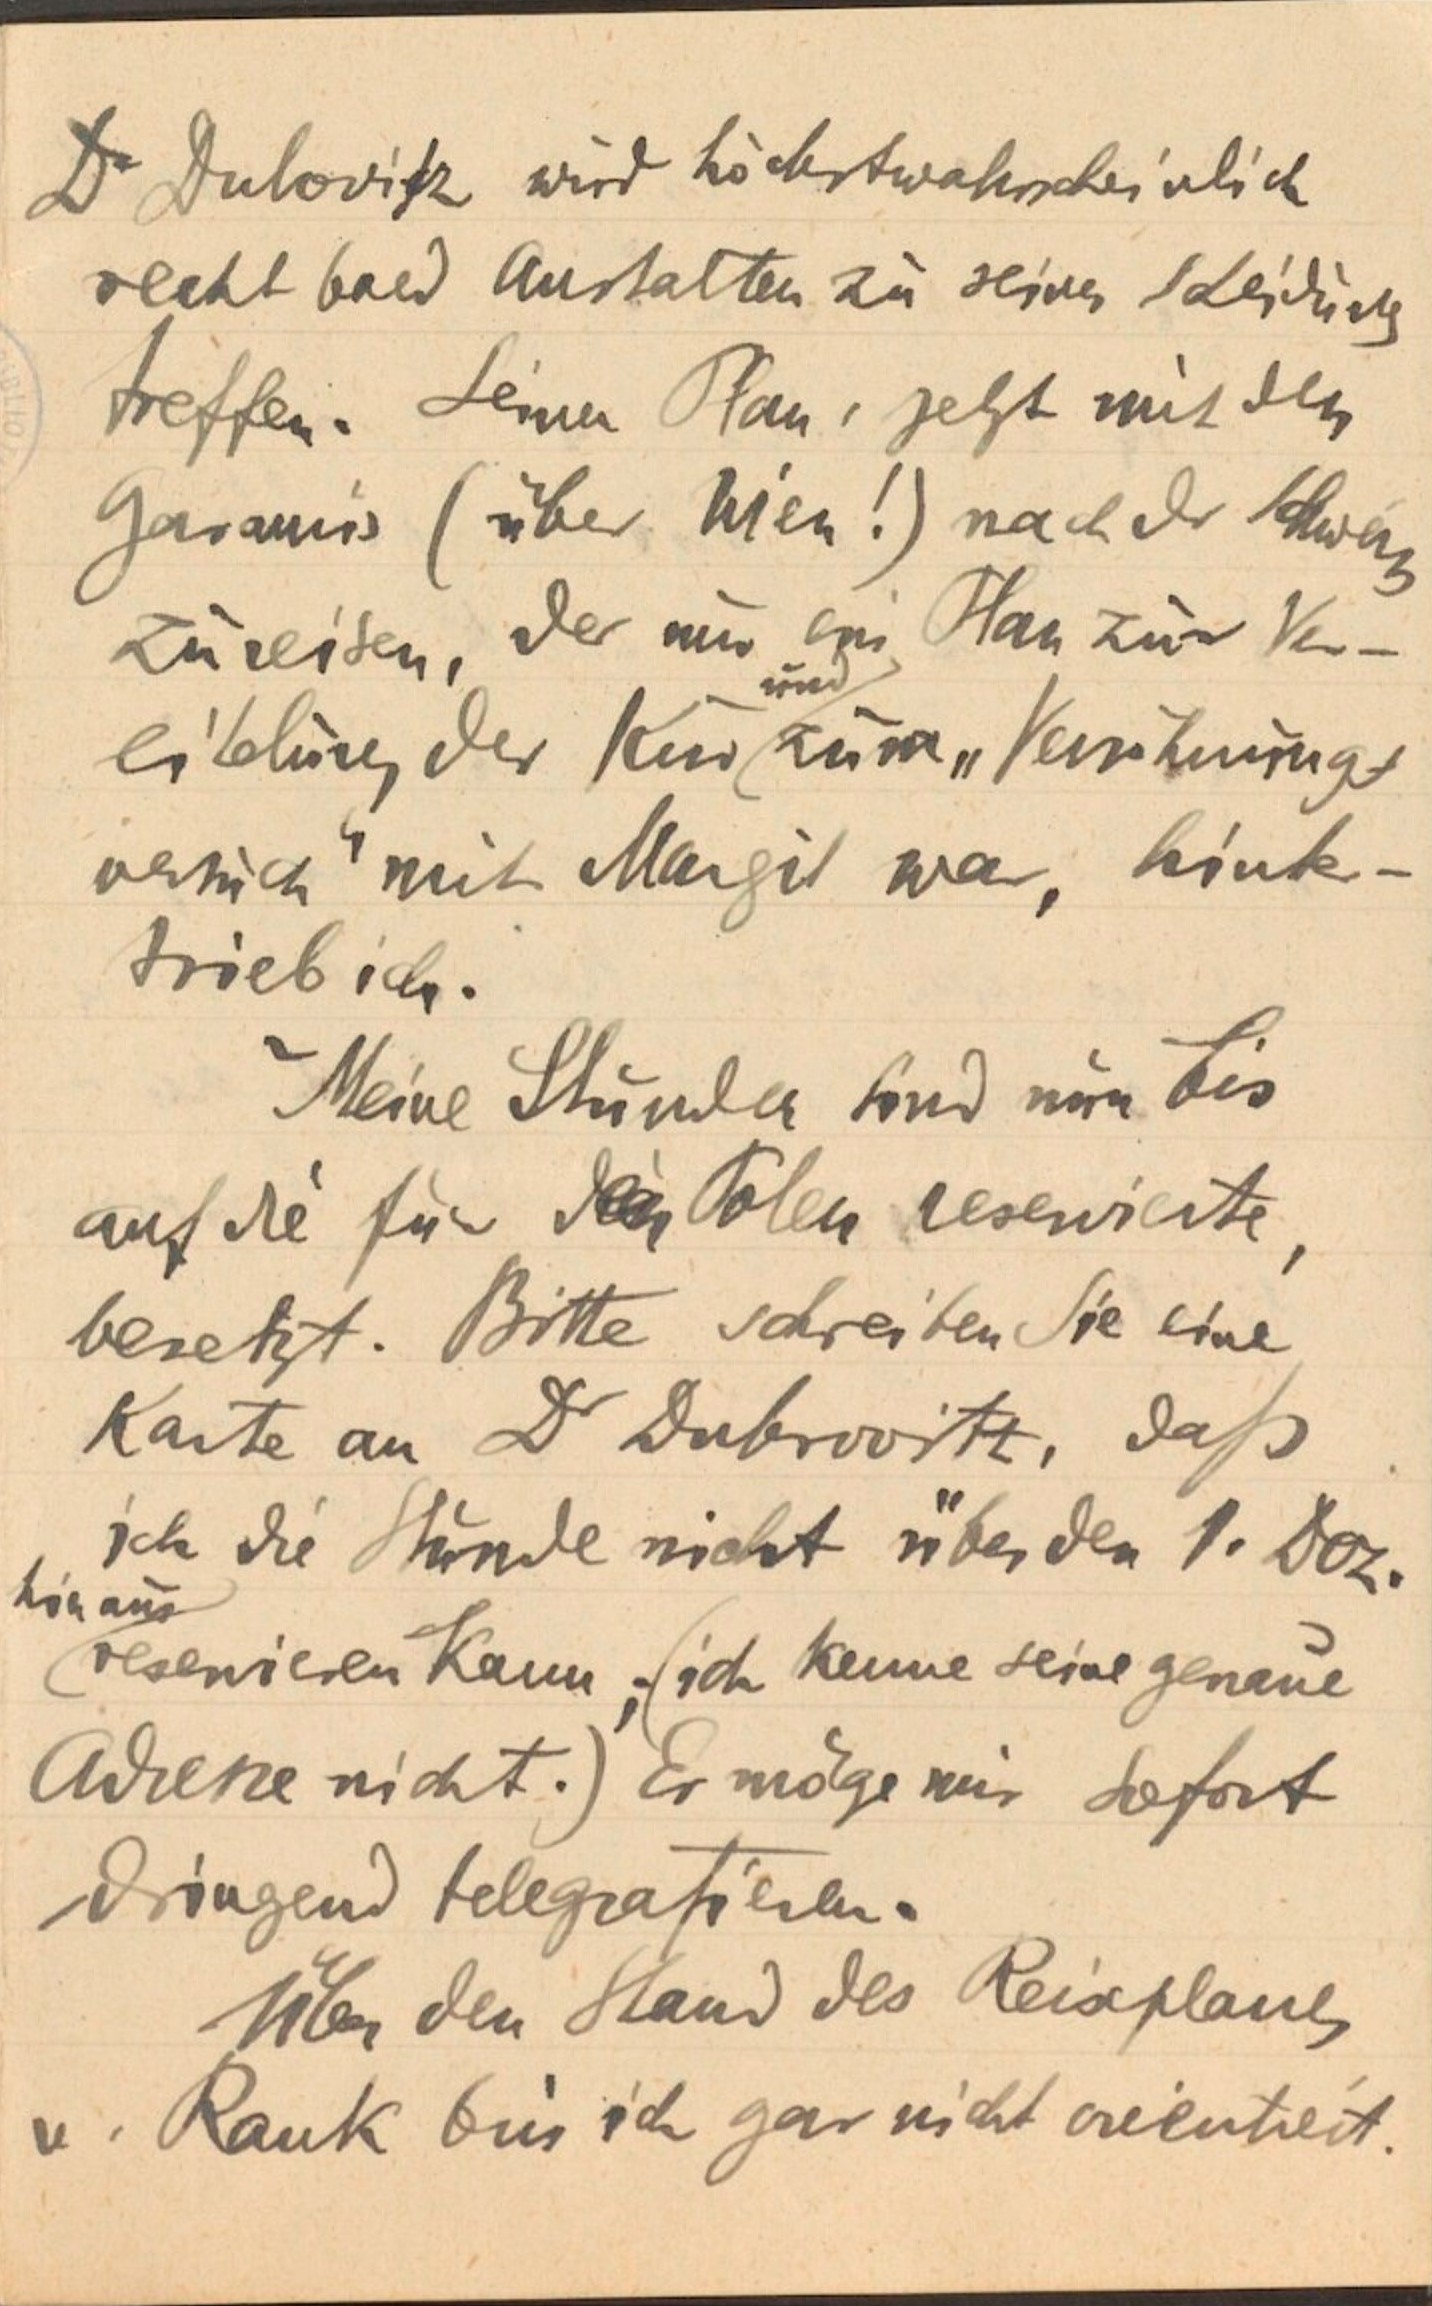 Dr Dubovitz wird höchstwahrscheinlich
recht bald Anstalten zu seiner Scheidung
treffen. Seinen Plan, jetzt mit den
Garamis (über Wien!) nach der Schweiz
zu reisen, der nur ein Plan zur Ver-
eitelung der Kur und zum „Versöhnungs
versuch" mit Margit war, hinter-
trieb ich.
Meine Stunden sind nun bis
auf die für den Polen reservierte,
besetzt. Bitte schreiben Sie eine
Karte an Dr Dubrovitz, daß
ich die Stunde nicht über den 1. Dez.
hinaus
reservieren kann; (ich kenne seine genaue
Adresse nicht.) Er möge mir sofort
dringend telegrafieren.
Über den Stand des Reiseplanes
v. Rank bin ich gar nicht orientiert.